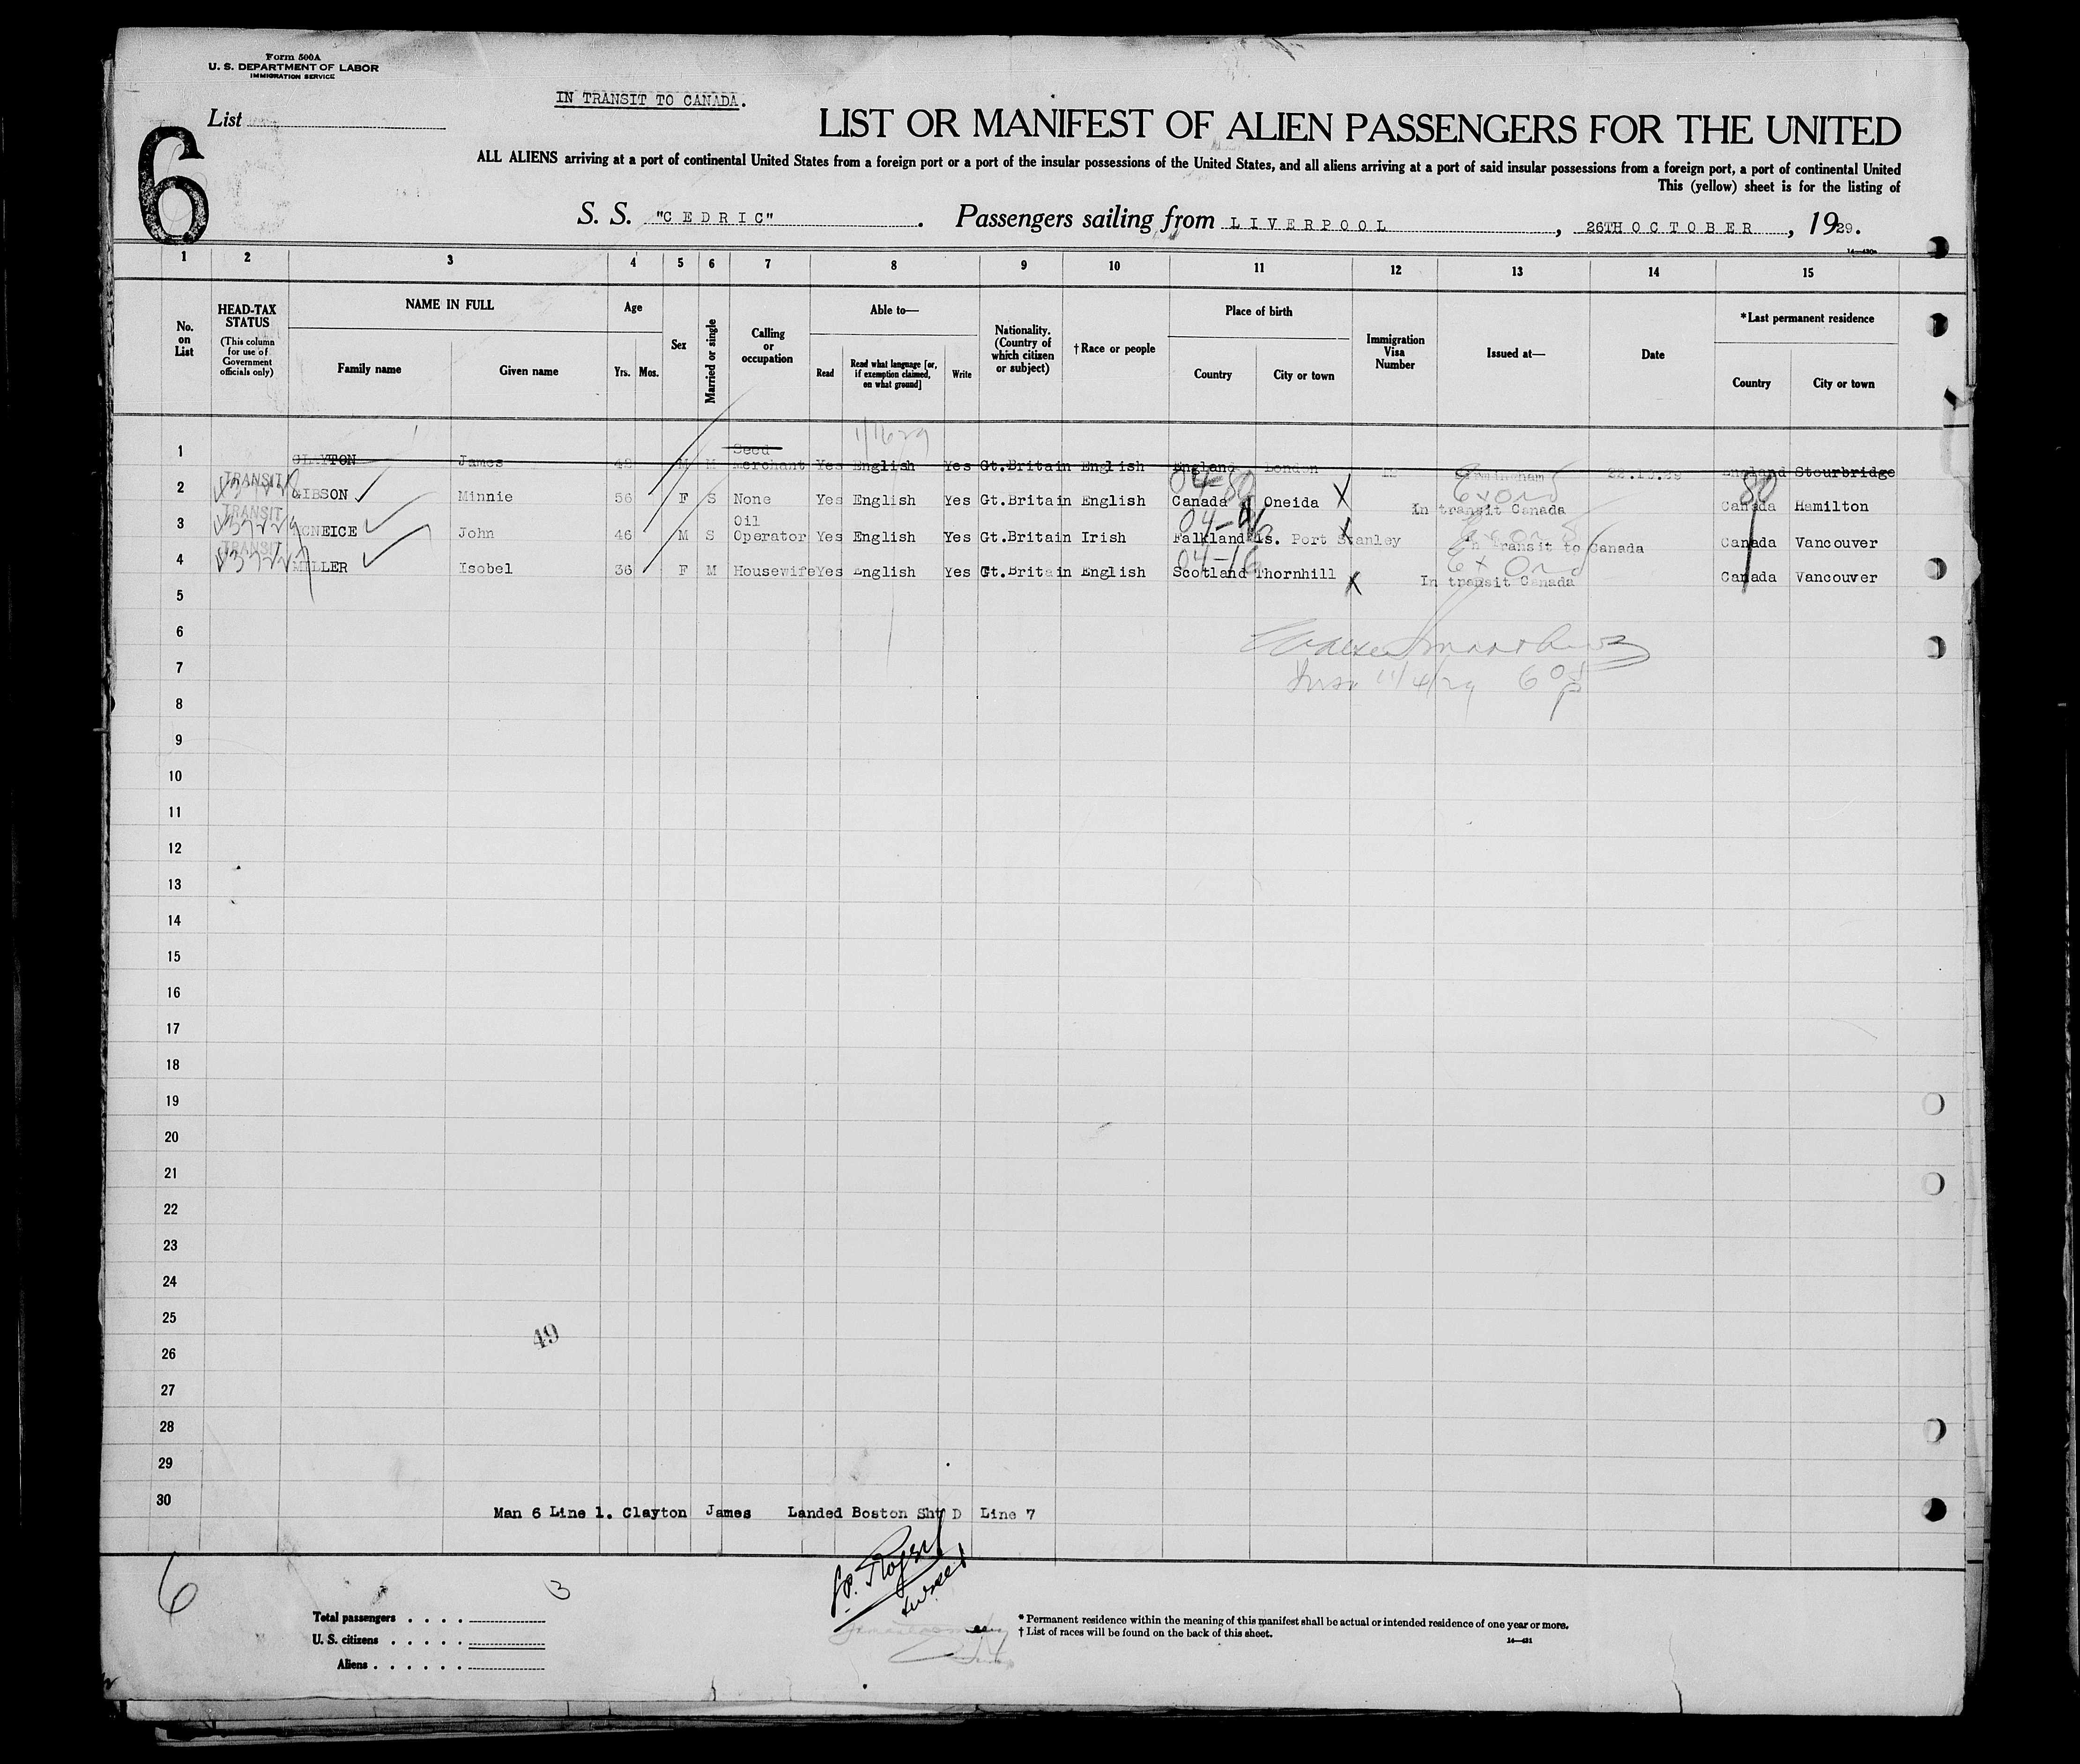 Form 500A
U. S. DEPARTMENT OF LABOR
IMMIGRATION SERVICE
IN TRANSIT TO CANADA.
List
6
LIST OR MANIFEST OF ALIEN PASSENGERS FOR THE UNITED
ALL ALIENS arriving at a port of continental United States from a foreign port or a port of the insular possessions of the United States, and all aliens arriving at a port of said insular possessions from a foreign port, a port of continental United
This (yellow) sheet is for the listing of
S. S. "CEDRIC". Passengers sailing from LIVERPOOL, 26TH OCTOBER, 1929.
1 2 3 4 5 6 7 8 9 10 11 12 13 14 15
No. on List
HEAD-TAX STATUS
(This column for use of Government officials only)
NAME IN FULL
Family name Given name
Age
Yrs. Mos.
Sex
Married or single
Calling or occupation
Able to—
Read Read what language [or, if exemption claimed, on what ground] Write
Nationality. (Country of which citizen or subject)
†Race or people
Place of birth
Country City or town
Immigration Visa Number
Issued at—
Date
*Last permanent residence
Country City or town
1/16 29
1 CLAYTON James 48 M M Seed Merchant Yes English Yes Gt.Britain English England London 12 Birmingham 22.10.29 England Stourbridge
2 TRANSIT GIBSON Minnie 56 F S None Yes English Yes Gt.Britain English Canada Oneida X In transit Canada Canada Hamilton
3 TRANSIT MCNEICE John 46 M S Oil Operator Yes English Yes Gt.Britain Irish Falkland Is. Port Stanley X In transit to Canada Canada Vancouver
4 TRANSIT MILLER Isobel 36 F M Housewife Yes English Yes Gt.Britain English 04-16 Scotland Thornhill X In transit Canada Canada Vancouver
5
6
7
11/4/29
8
9
10
11
12
13
14
15
16
17
18
19
20
21
22
23
24
25
49
26
27
28
29
30
Man 6 Line 1. Clayton James Landed Boston Sht D Line 7
6
3
Total passengers
U. S. citizens
Aliens
* Permanent residence within the meaning of this manifest shall be actual or intended residence of one year or more.
† List of races will be found on the back of this sheet.